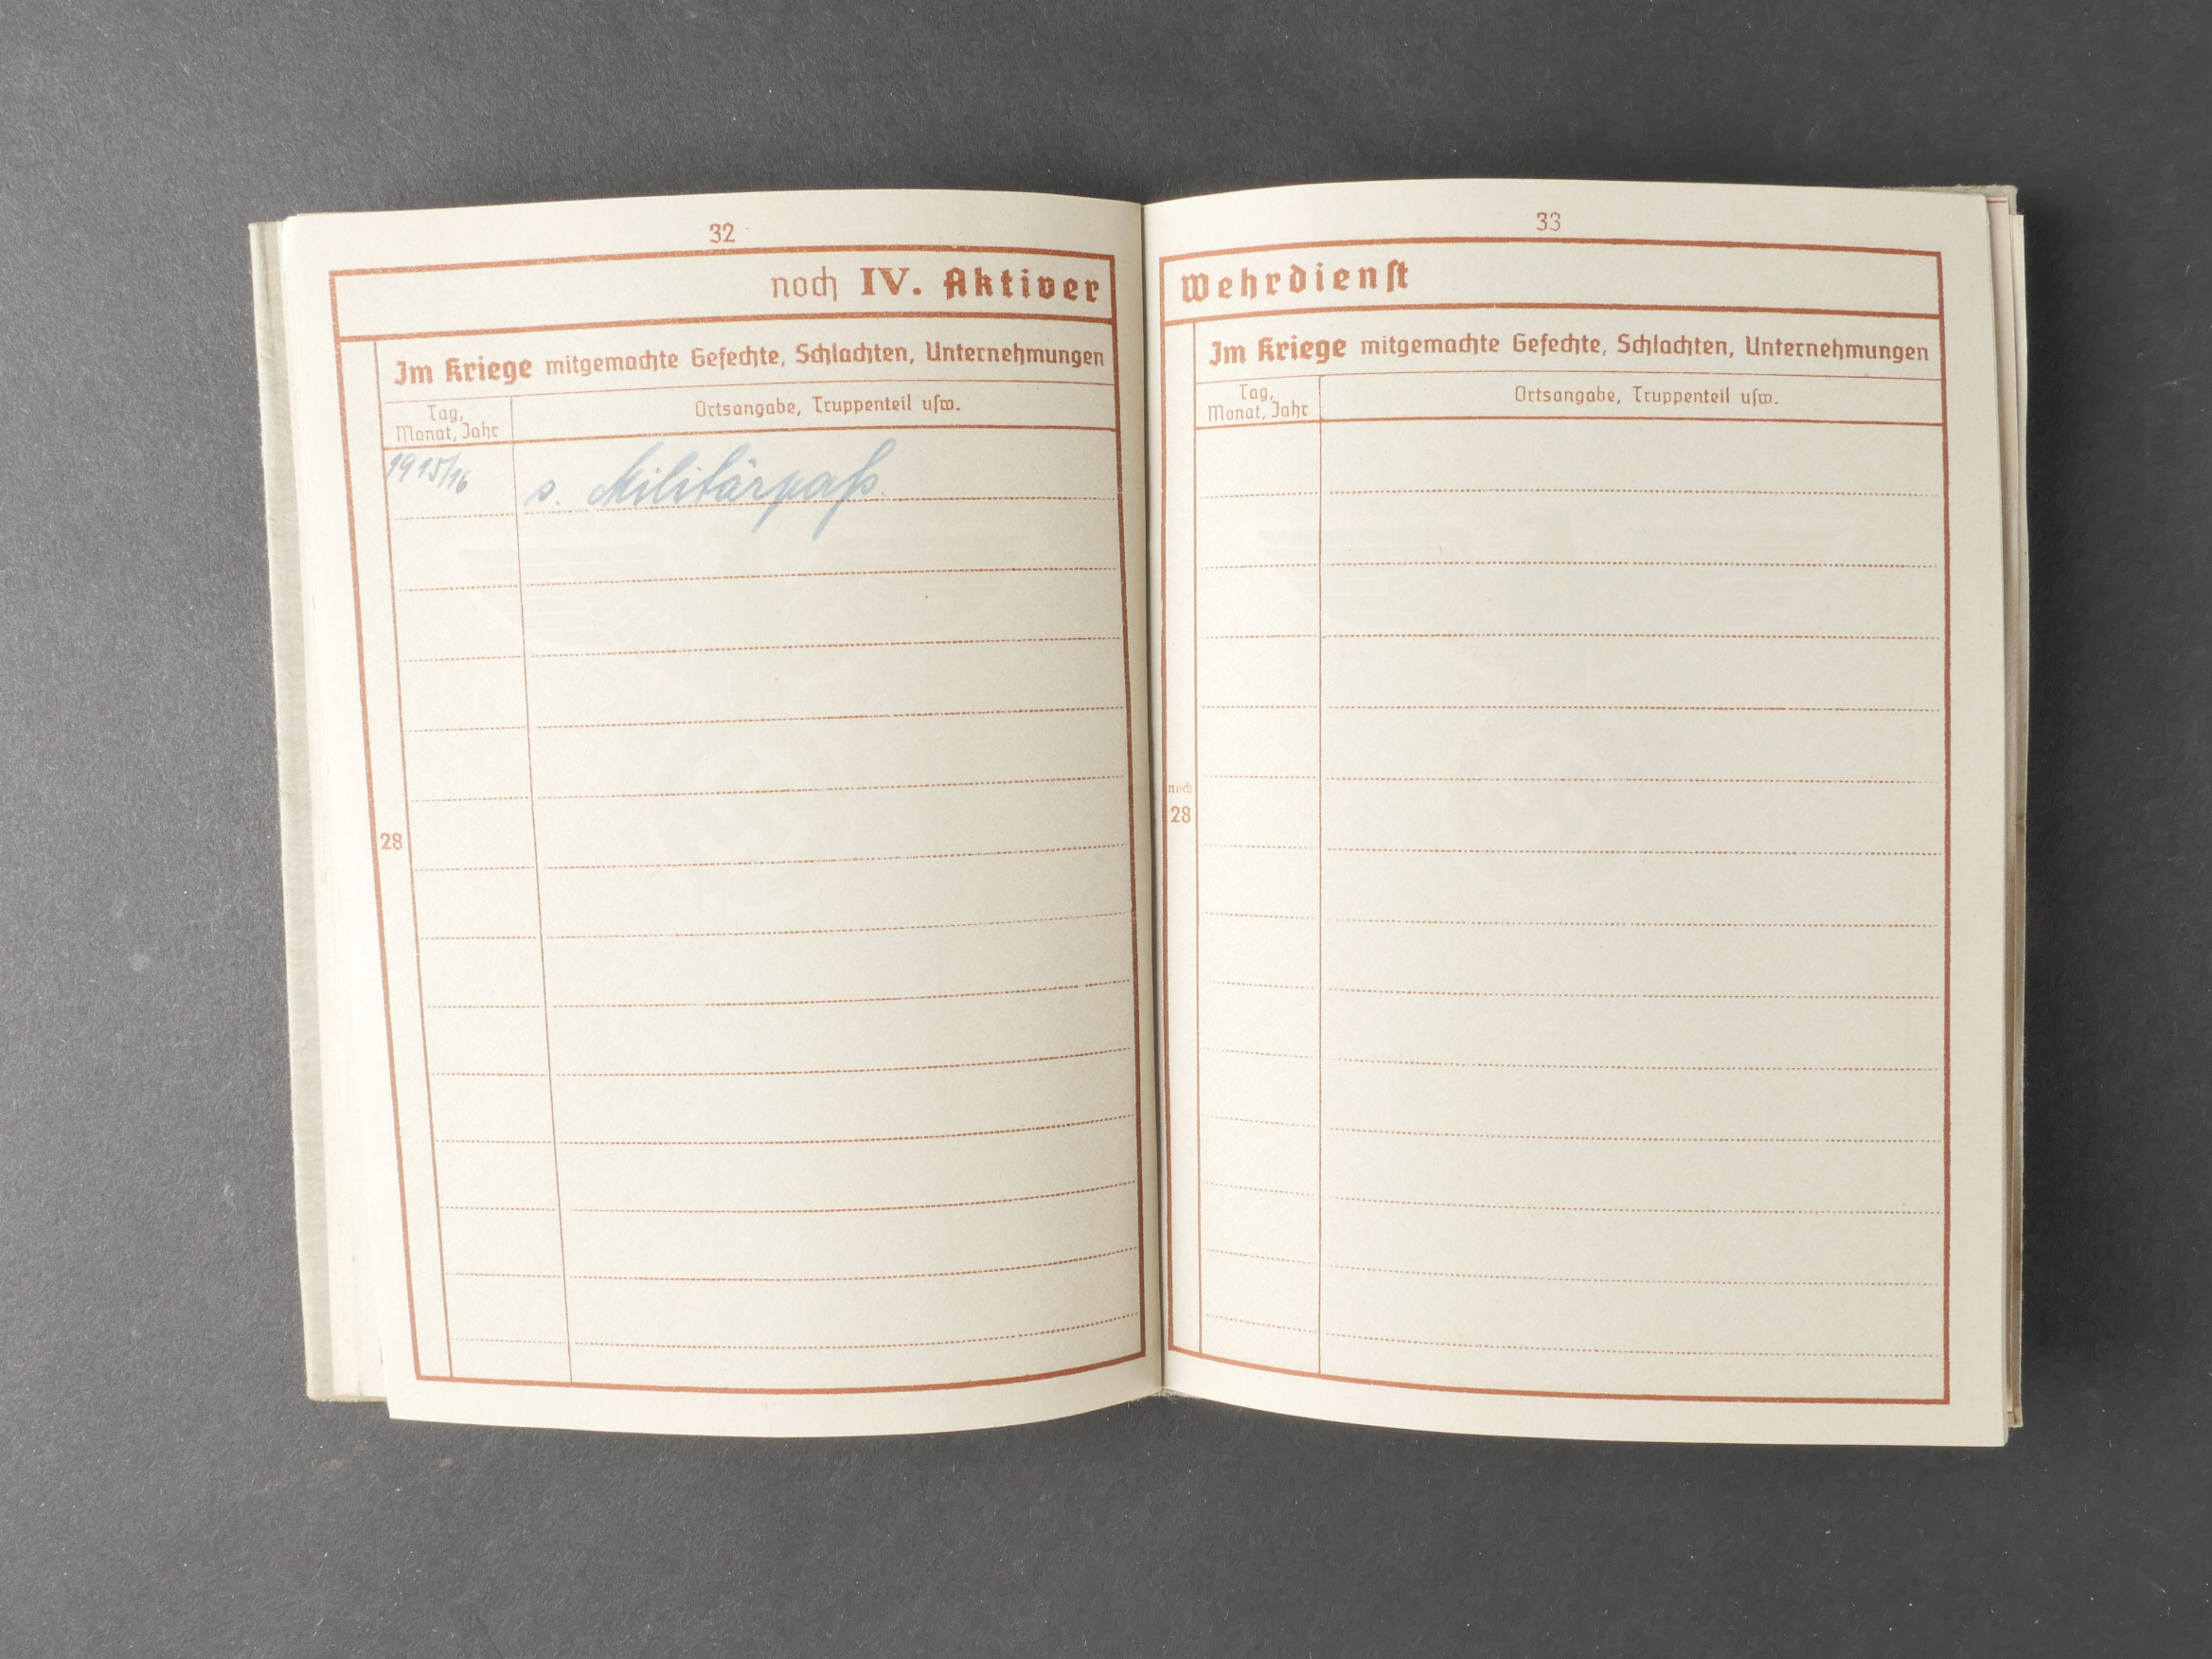 32
noch IV. Aktiver
Im Kriege mitgemachte Gefechte, Schlachten, Unternehmungen
Tag,
Monat, Jahr
Ortsangabe, Truppenteil usw.
1915/16 s. Militärpaß.
28
33
Wehrdienst
Im Kriege mitgemachte Gefechte, Schlachten, Unternehmungen
Tag,
Monat, Jahr
Ortsangabe, Truppenteil usw.
noch
28